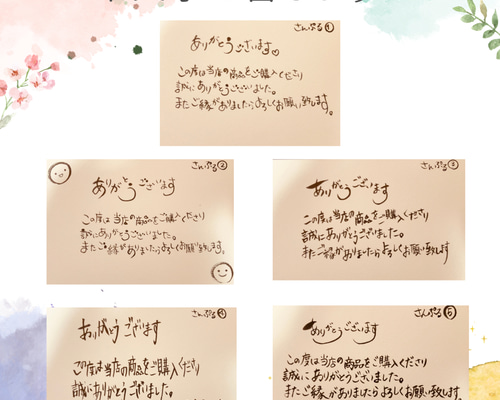 さんぷる①
ありがとうございます♡
この度は当店の商品をご購入くださり
誠にありがとうございました。
またご縁がありましたらよろしくお願い致します。
さんぷる②
ありがとうございます
この度は当店の商品をご購入くださり
誠にありがとうございました。
またご縁がありましたらよろしくお願い致します。
さんぷる③
ありがとうございます
この度は当店の商品をご購入くださり
誠にありがとうございました。
またご縁がありましたらよろしくお願い致します
さんぷる④
ありがとうございます
この度は当店の商品をご購入くださり
誠にありがとうございました。
さんぷる⑤
ありがとうございます
この度は当店の商品をご購入くださり
誠にありがとうございました。
またご縁がありましたらよろしくお願い致します。